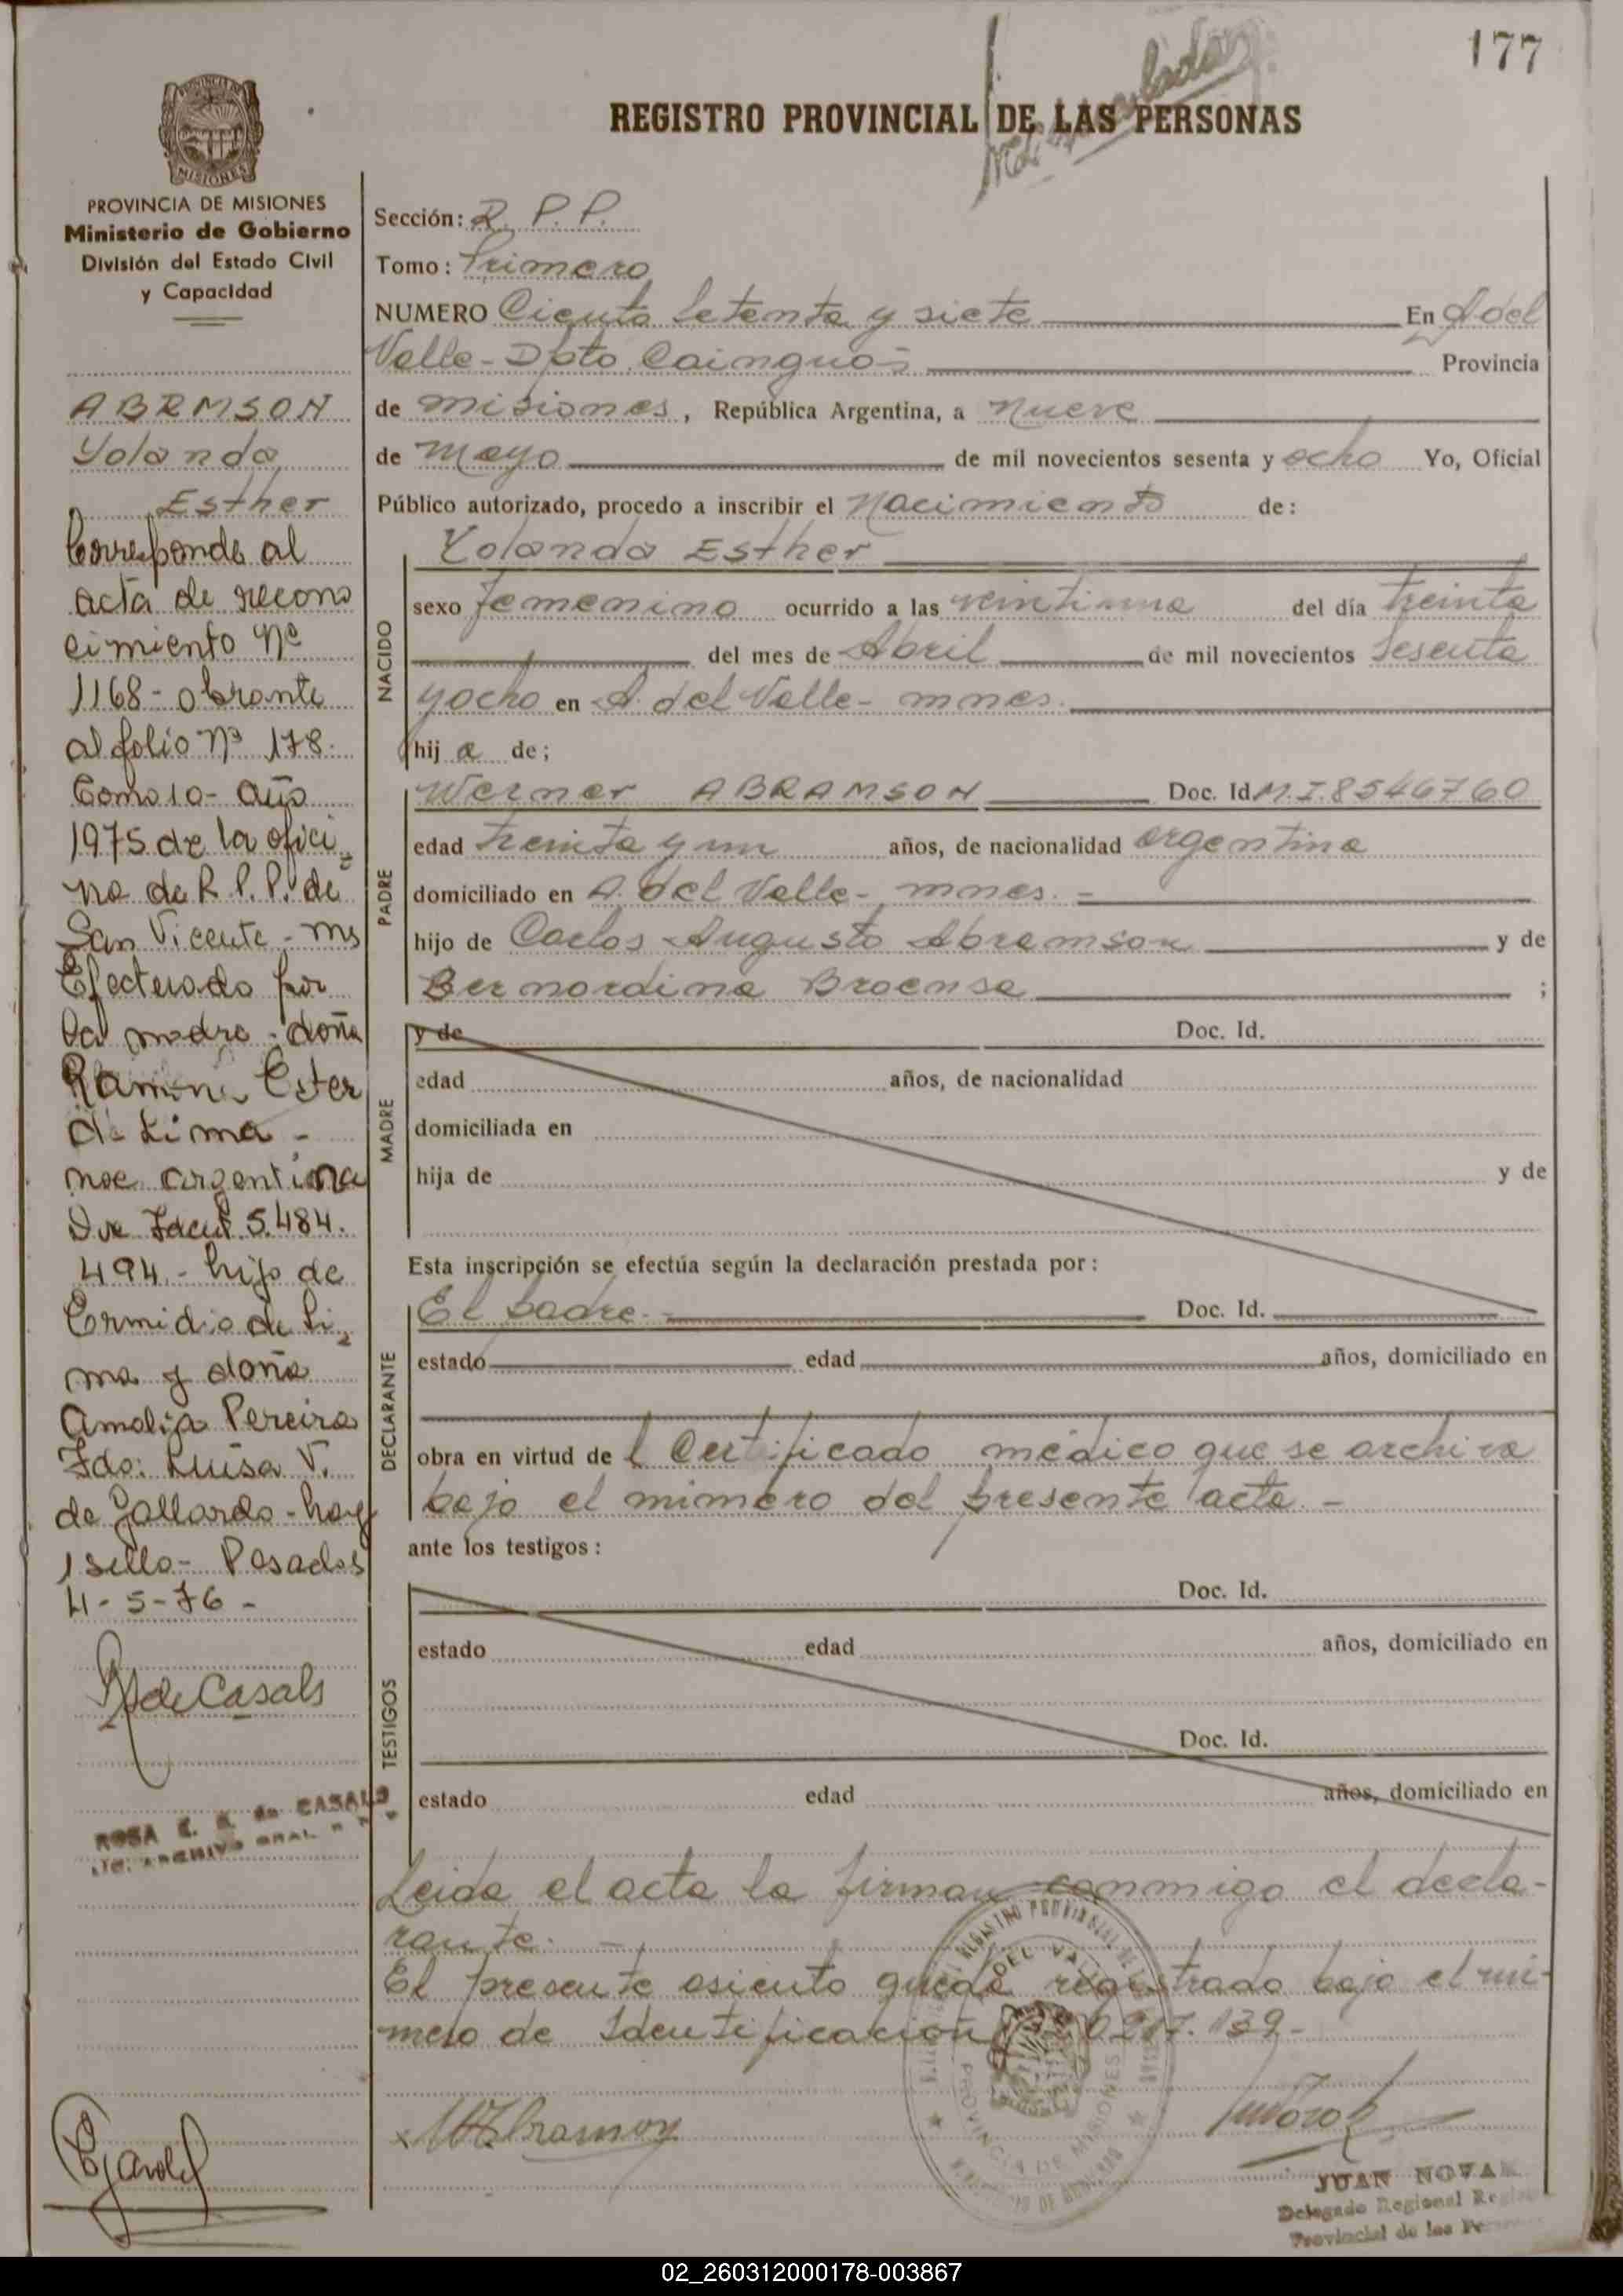 177
REGISTRO PROVINCIAL DE LAS PERSONAS
MISIONES
PROVINCIA DE MISIONES
Ministerio de Gobierno
División del Estado Civil
y Capacidad
ABRMSON
Yolanda
Esther
Corresponde al
acta de recono
cimiento Nº
1168 - obrante
al folio nº 178.
Tomo 10 - año
1975 de la ofici
na de R. P. P. de
San Vicente - Ms
Efectuado por
la madre - doña
Ramona Ester
de Lima -
nac argentina
Doc Ident 5.484.
494 - hija de
Ermidio de Li
ma y doña
Amalia Pereira
Fdo: Luisa V.
de Gallardo - hay
1 sello - Posadas
4-5-76 -
R de Casals
ROSA E. de CASALS
ARCHIVO GRAL
Sección: R. P. P.
Tomo: Primero
NUMERO Ciento setenta y siete En A del
Valle - Dpto Cainguás Provincia
de misiones, República Argentina, a nueve
de mayo de mil novecientos sesenta y ocho Yo, Oficial
Público autorizado, procedo a inscribir el nacimiento de:
NACIDO
Yolanda Esther
sexo femenino ocurrido a las veintiuna del día treinta
del mes de Abril de mil novecientos sesenta
yocho en A. del Valle - mnes.
hij a de;
PADRE
Werner ABRAMSON Doc. Id. M.I. 8546760
edad treinta y un años, de nacionalidad argentina
domiciliado en A. del Valle - mnes. -
hijo de Carlos Augusto Abramson y de
Bernardina Broensa ;
MADRE
y de Doc. Id.
edad años, de nacionalidad
domiciliada en
hija de y de
Esta inscripción se efectúa según la declaración prestada por:
DECLARANTE
El padre. Doc. Id.
estado edad años, domiciliado en
obra en virtud de l Certificado médico que se archiva
bajo el número del presente acta. -
ante los testigos:
TESTIGOS
Doc. Id.
estado edad años, domiciliado en
Doc. Id.
estado edad años, domiciliado en
Leida el acta la firman conmigo el decla-
rante. -
El presente asiento queda registrado bajo el nú-
mero de Identificación 139 -
PROVINCIA DE MISIONES
JUAN NOVAK
Delegado Regional
Provincial de las
02_260312000178-003867